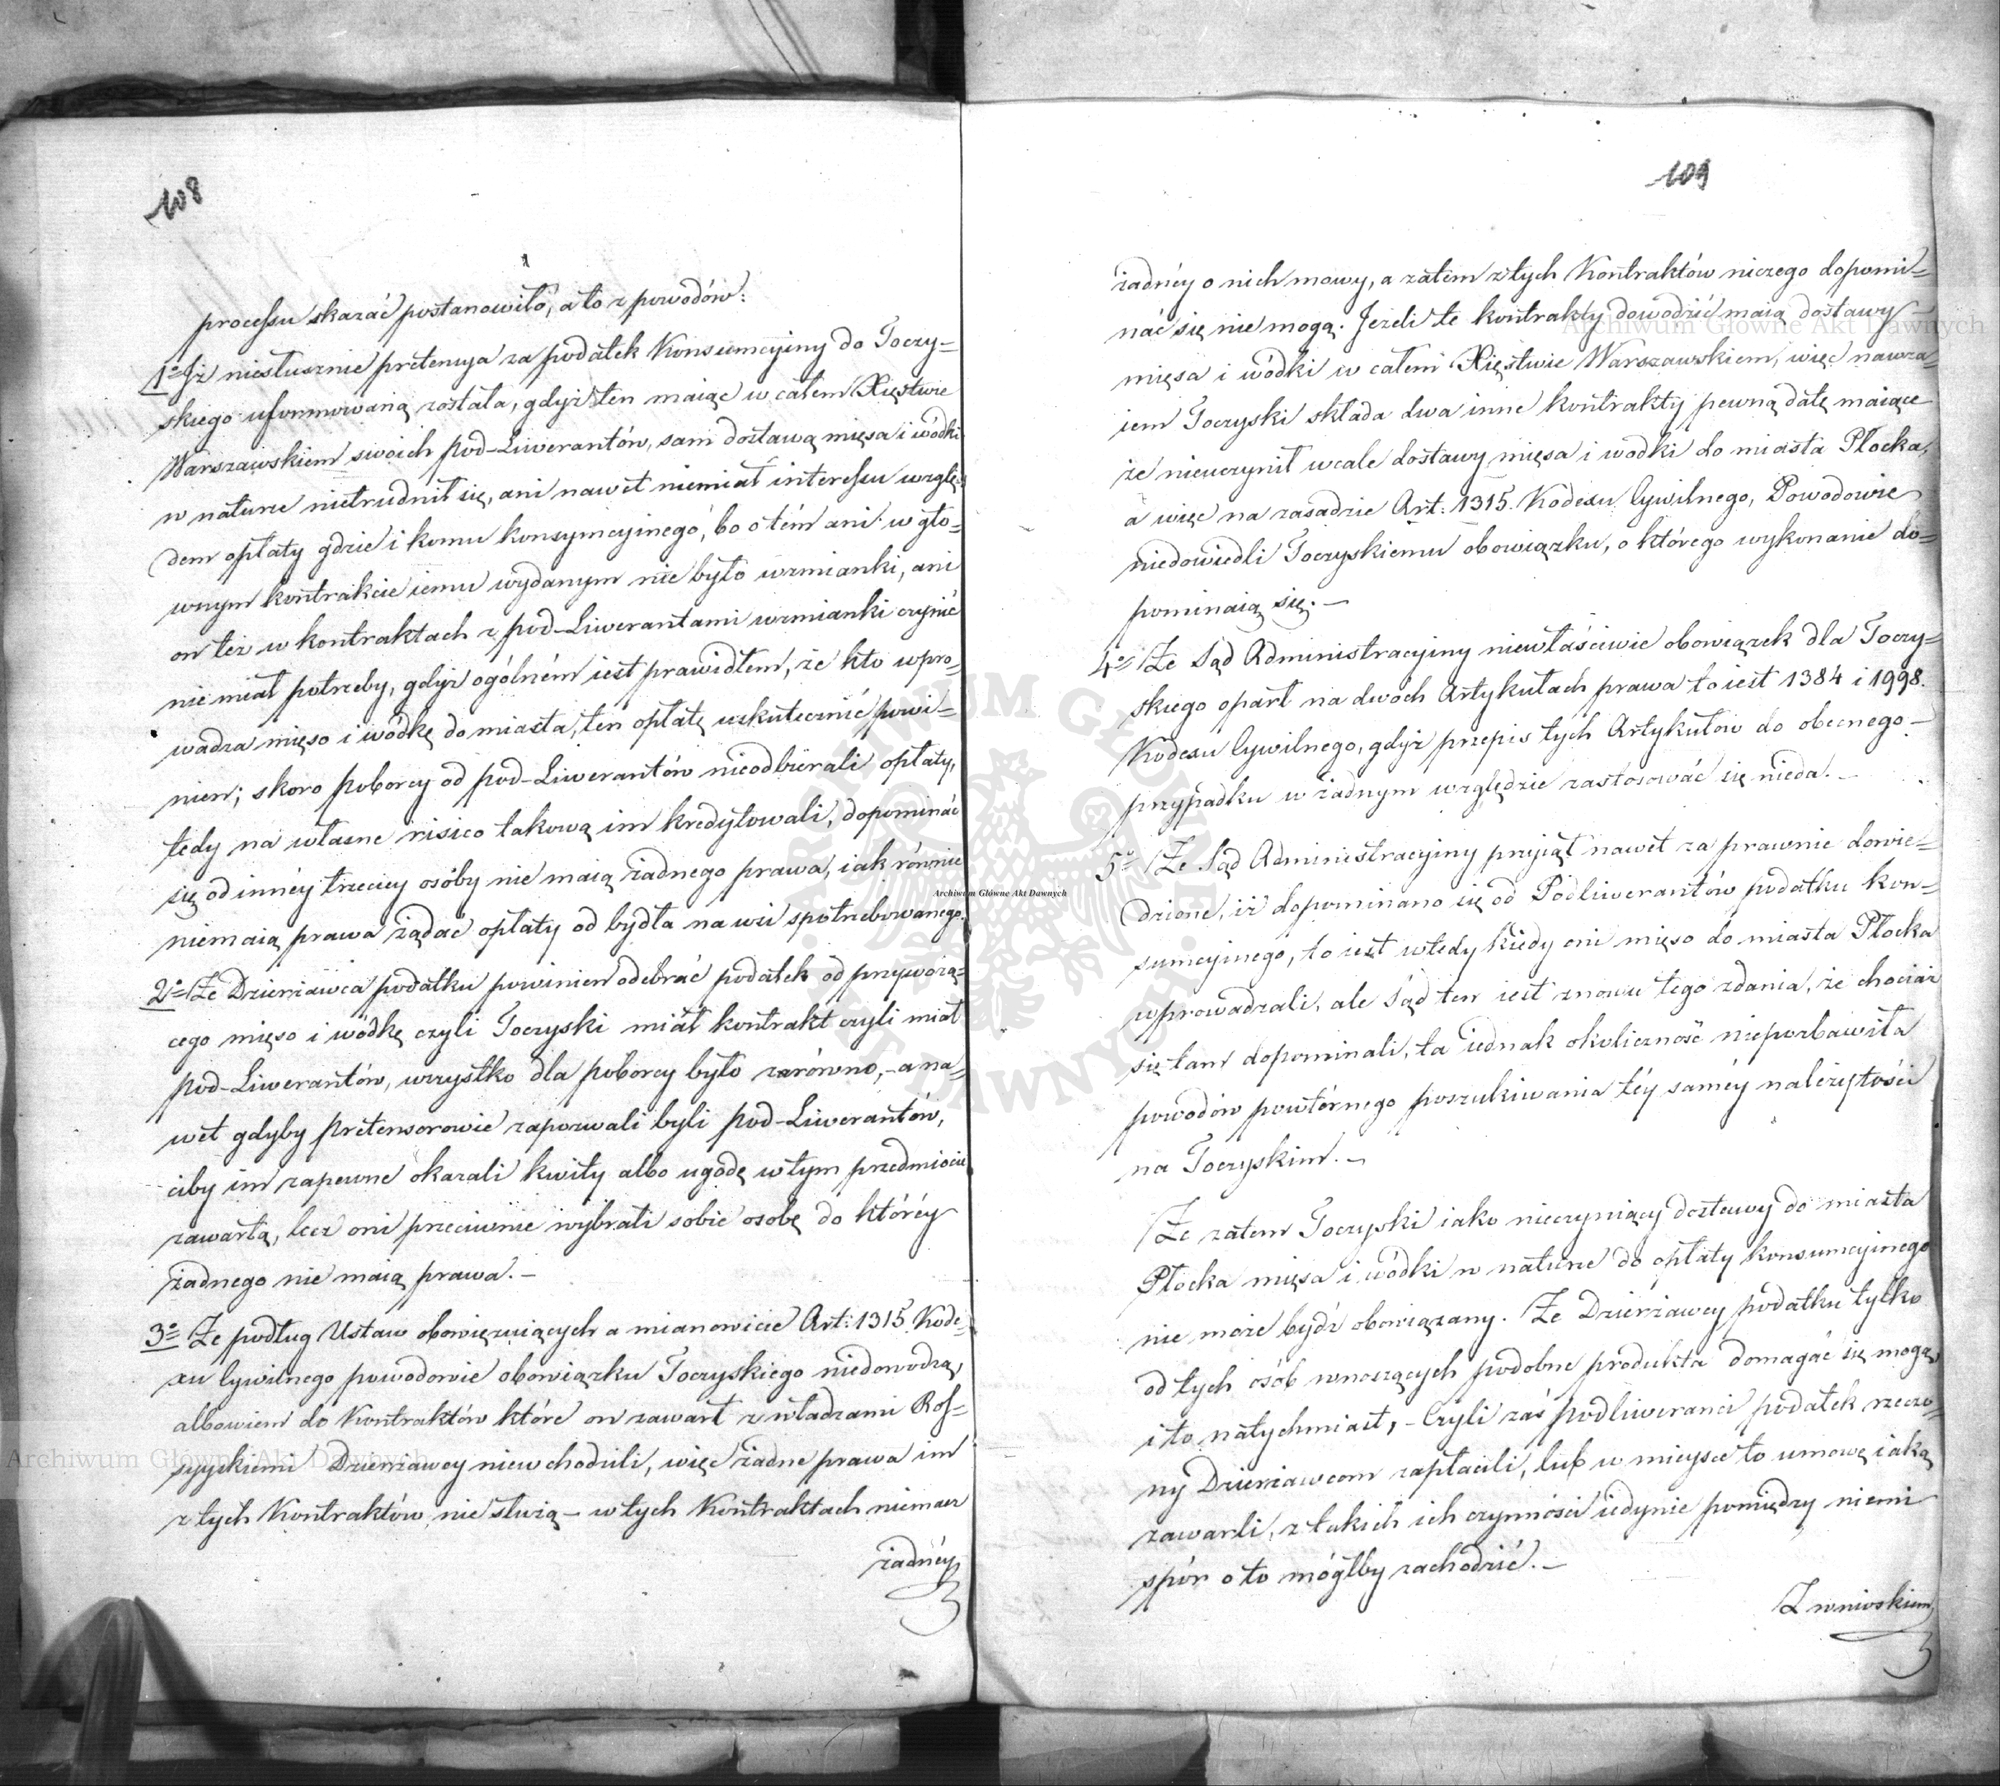 108
processu skazać postanowiło, a to z powodów:
1o Iż niesłusznie pretensya za podatek Konsumcyiny do Toczy=
skiego uformowaną została, gdyż ten maiąc w całem Xięstwie
Warszawskiem swoich pod-Liwerantów, sam dostawą mięsa i wódki
w naturze nietrudnił się, ani nawet niemiał interessu wzglę=
dem opłaty gdzie i komu konsymcyinego, bo o tém ani w głó=
wnym kontrakcie iemu wydanym nie było wzmianki, ani
on też w kontraktach z pod-Liwerantami wzmianki czynić
nie miał potrzeby, gdyż ogólném iest prawidłem, że kto wpro=
wadza mięso i wódkę do miasta, ten opłatę uskutecznić powi=
nien; skoro poborcy od pod-Liwerantów nieodbierali opłaty,
tedy na własne risico takową im kredytowali, dopominać
się od innéy trzeciey osóby nie maią żadnego prawa, iak równie
niemaią prawa żądać opłaty od bydła na wsi spotrzebowanego.
2o Że Dzierżawca podatku powinien odebrać podatek od przywożą=
cego mięso i wódkę czyli Toczyski miał kontrakt czyli miał
pod-Liwerantów, wszystko dla poborcy było zarówno, - a na=
wet gdyby pretensorowie zapozwali byli pod-Liwerantów,
ciby im zapewne okazali kwity albo ugodę w tym przedmiocie
zawartą, lecz oni przeciwnie wybrali sobie osobę do któréy
żadnego nie maią prawa. -
3o Że podług Ustaw obowięzuiących a mianowicie Art: 1315 Kode=
xu Cywilnego powodowie obowiązku Toczyskiego niedowodzą,
albowiem do Kontraktów które on zawarł z władzami Ros=
syyskiemi Dzierżawcy niewchodzili, więc żadne prawa im
z tych Kontraktów nie służą - w tych Kontraktach niemasz
żadnéy
109
żadnéy o nich mowy, a zatem z tych Kontraktów niczego dopomi=
nać się nie mogą. Jeżeli te kontrakty dowodzić maią dostawy
mięsa i wódki w całem Xięstwie Warszawskiem, więc nawza=
iem Toczyski składa dwa inne kontrakty pewną datę maiące
że nieuczynił wcale dostawy mięsa i wodki do miasta Płocka,
a więc na zasadzie Art: 1315. Kodexu Cywilnego, Powodowie
niedowiedli Toczyskiemu obowiązku, o którego wykonanie do=
pominaią się. -
4o Że Sąd Administracyiny niewłaściwie obowiązek dla Toczy=
skiego oparł na dwóch Artykułach prawa to iest 1384 i 1998.
Kodexu Cywilnego, gdyż przepis tych Artykułów do obecnego -
przypadku w żadnym względzie zastosować się nieda. -
5o Że Sąd Administracyiny przyiął nawet za prawnie dowie=
dzione, iż dopominano się od Podliwerantów podatku kon=
sumcyinego, to iest wtedy kiedy oni mięso do miasta Płocka
wprowadzali, ale Sąd ten iest znowu tego zdania, że chociaż
się tam dopominali, ta iednak okoliczność niepozbawiła
powodów powtórnego poszukiwania téy saméy należytości
na Toczyskim. -
Że zatem Toczyski iako nieczyniący dostawy do miasta
Płocka mięsa i wódki w naturze do opłaty konsumcyinego
nie może bydź obowiązany. Że Dzierżawcy podatku tylko
od tych osób wnoszących podobne produkta domagać się mogą
i to natychmiast, - Czyli zaś podliweranci podatek rzeczo=
ny Dzierżawcom zapłacili, lub w mieysce to umowę iaką
zawarli, z takich ich czynności iedynie pomiędzy niemi
spór o to mógłby zachodzić. -
Z wnioskiem
Archiwum Główne Akt Dawnych
Archiwum Główne Akt Dawnych
Archiwum Główne Akt Dawnych
ARCHIWUM GŁÓWNE AKT DAWNYCH